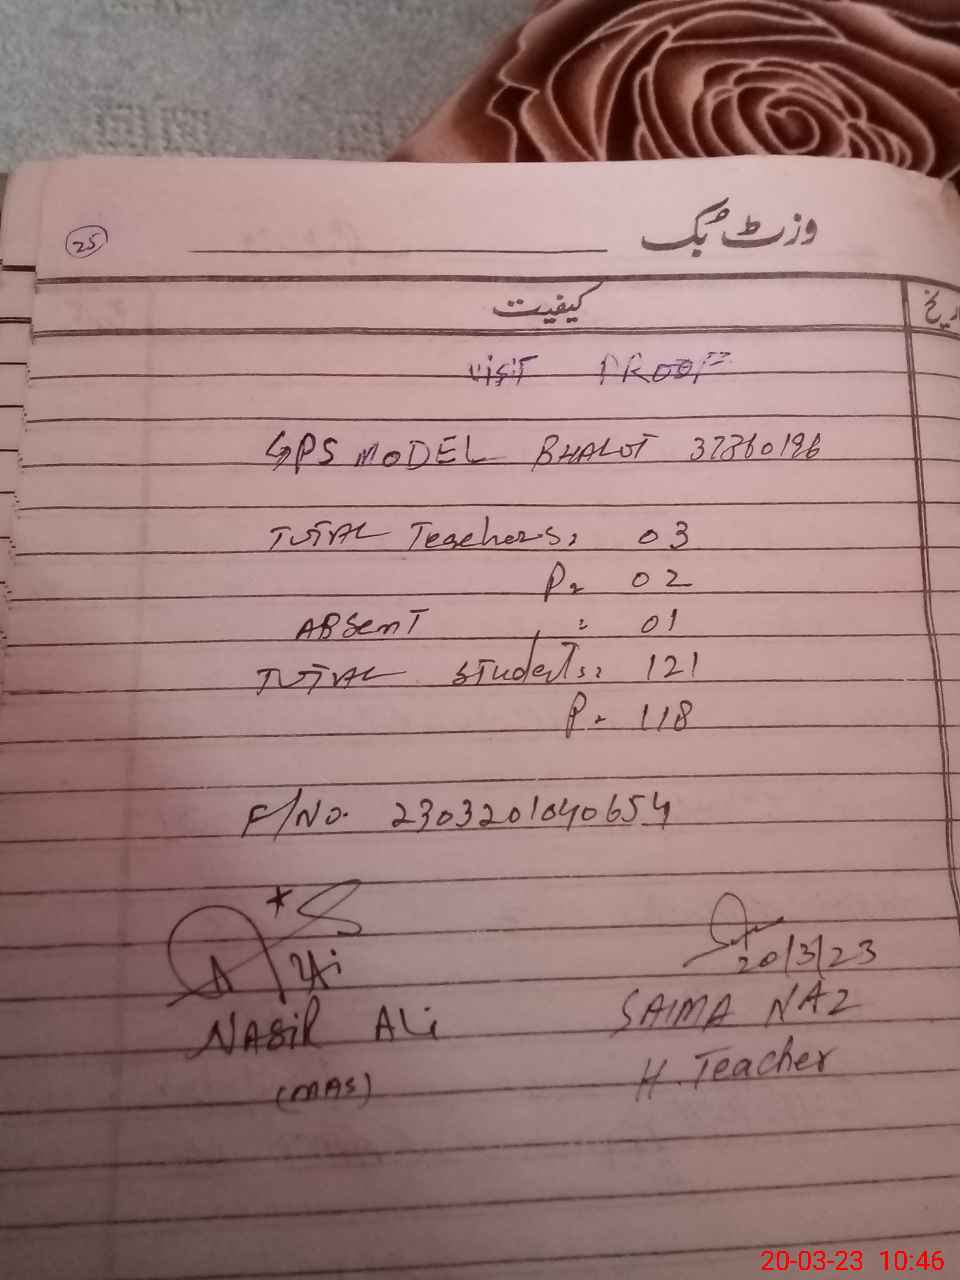 25
وزٹ بُک
کیفیت
تاریخ
visit PROOF
GPS MODEL BHALOT 37360196
TOTAL Teachers: 03
P= 02
ABSENT : 01
TOTAL Students: 121
P= 118
F/NO. 2303201040654
20/3/23
NASIR ALi
SAIMA NAZ
(MAS)
H. Teacher
20-03-23 10:46